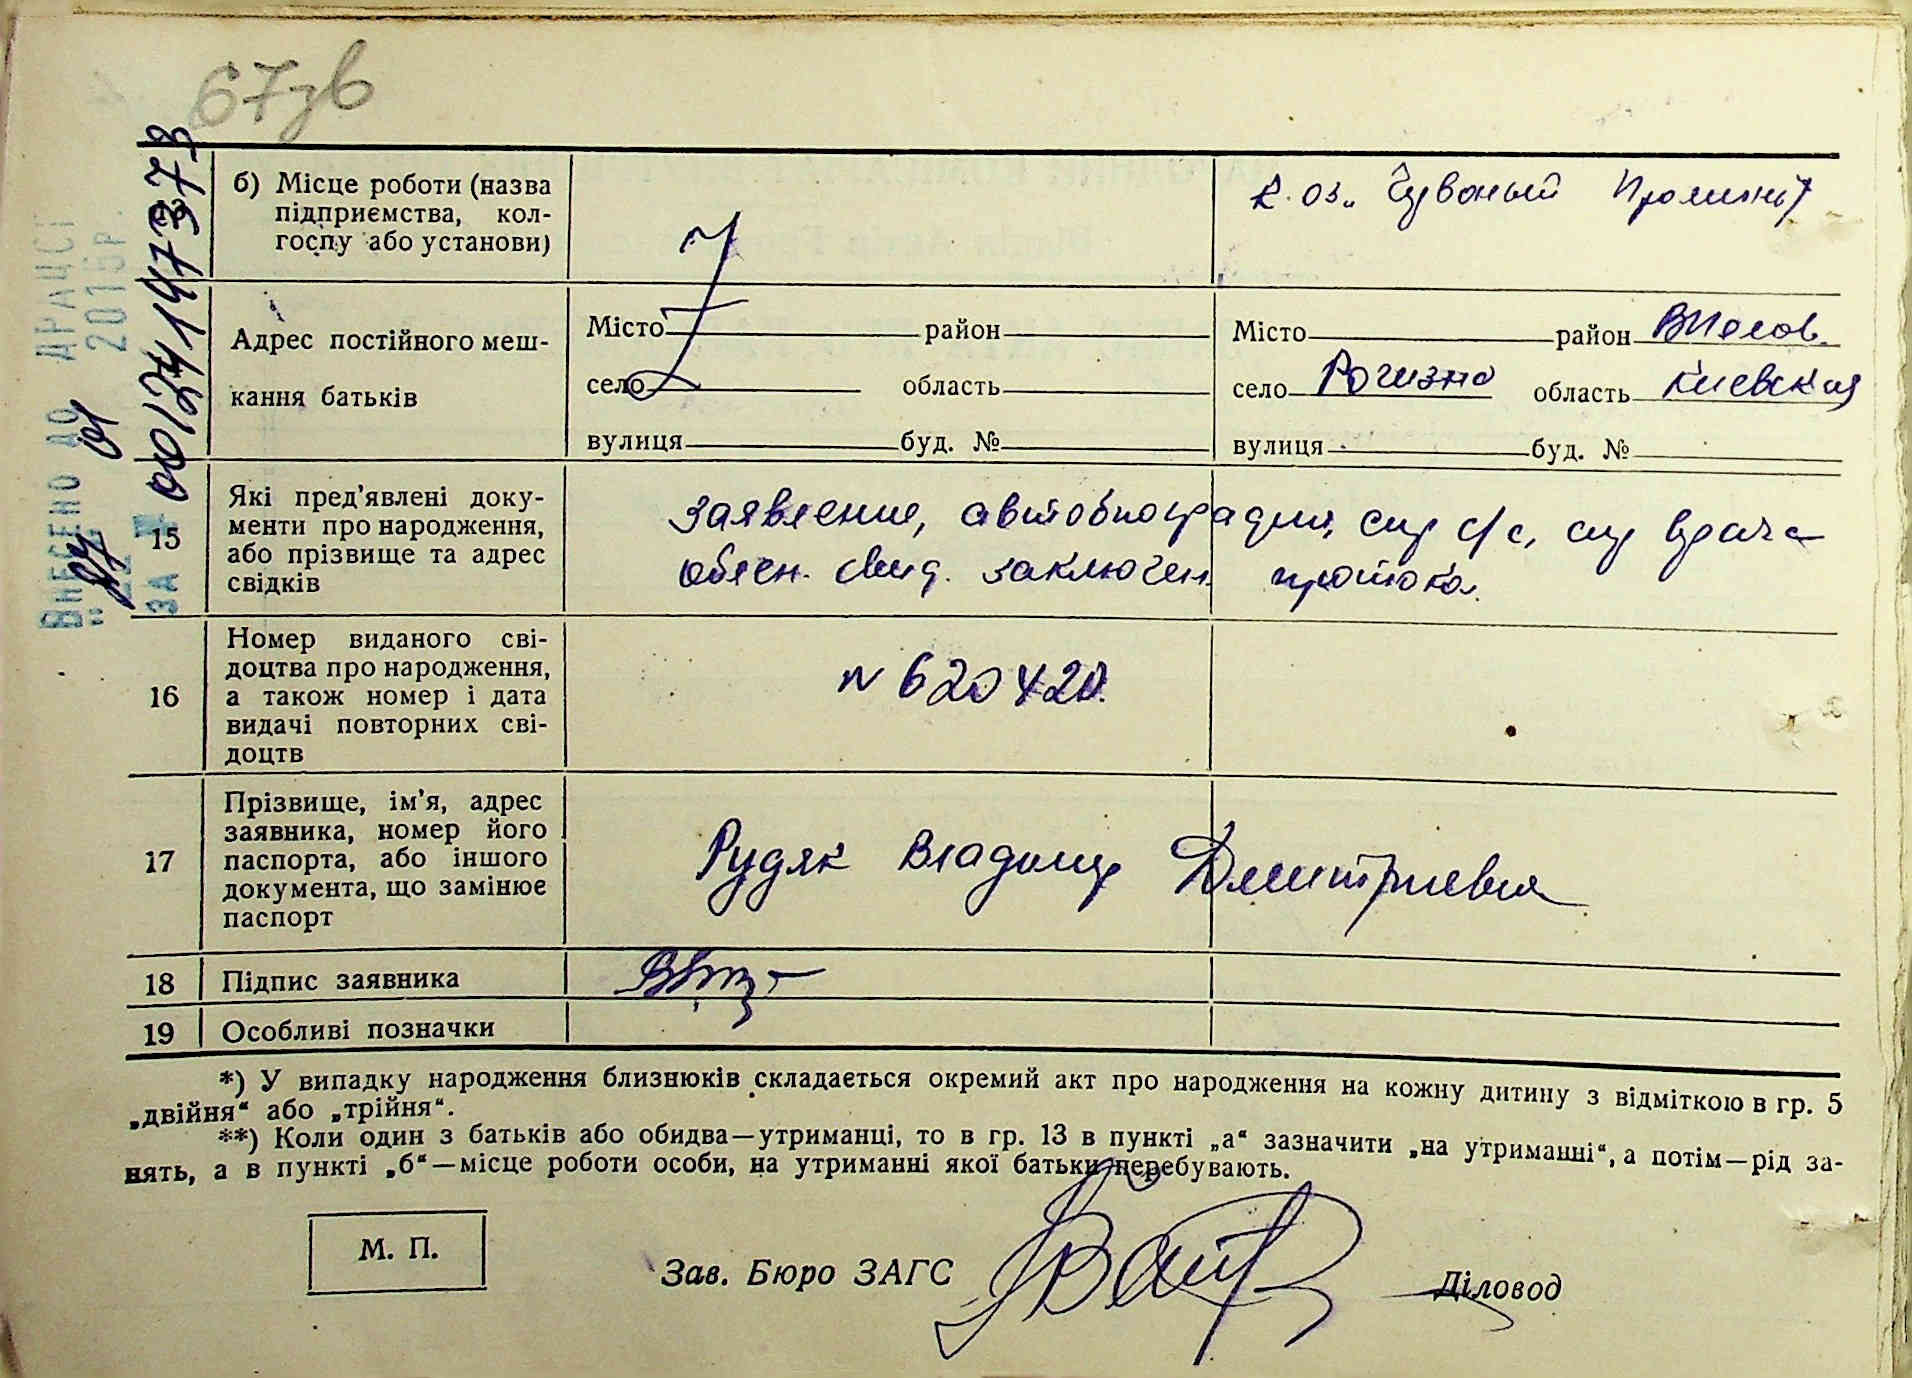 67зв
ВНЕСЕНО ДО ДРАЦСГ
" 22 " 01 2015р.
ЗА № 00124119737378
б) Місце роботи (назва
підприємства, кол-
госпу або установи)
к-оз „ Чувоный Проминь"
Адрес постійного меш-
кання батьків
Місто район
село область
вулиця буд. №
Місто район ВПолов.
село Рогизна область Киевская
вулиця буд. №
15 Які пред'явлені доку-
менти про народження,
або прізвище та адрес
свідків
заявление, автобиография, спр с/с, спр врача
обясн. свид. заключен. протокол.
16 Номер виданого сві-
доцтва про народження,
а також номер і дата
видачі повторних сві-
доцтв
N 620420.
17 Прізвище, ім'я, адрес
заявника, номер його
паспорта, або іншого
документа, що замінює
паспорт
Рудяк Владимир Дмитриевич
18 Підпис заявника
19 Особливі позначки
*) У випадку народження близнюків складається окремий акт про народження на кожну дитину з відміткою в гр. 5
„двійня“ або „трійня“.
**) Коли один з батьків або обидва—утриманці, то в гр. 13 в пункті „а“ зазначити „на утриманні“, а потім—рід за-
нять, а в пункті „б“—місце роботи особи, на утриманні якої батьки перебувають.
М. П.
Зав. Бюро ЗАГС Діловод